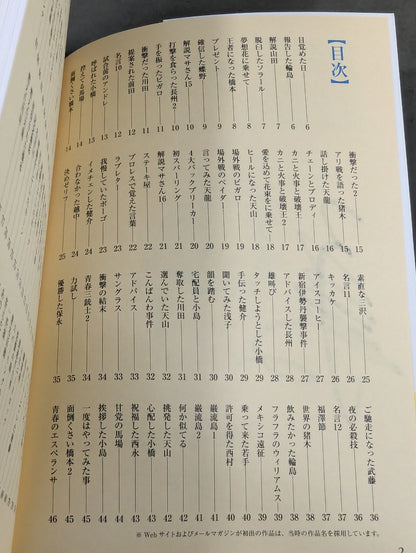 【目次】
目覚めた日 6
報告した輪島 6
解説山田 7
脱臼したソラール 7
夢想花に乗せて 8
王者になった橋本 8
プレゼント 9
確信した蝶野 9
解説マサさん15 10
打撃を食らった長州2 10
手を振ったビガロ 11
衝撃だった川田 11
提案された前田 12
名言10 12
試合前のアンドレ 13
呼ばれた小橋 13
控えてる馬場 14
面倒くさい橋本 14
衝撃だった2 15
アリ戦を語った猪木 15
話し掛けた天龍 16
チェーンとブロディ 16
カニと火事と破壊王 17
カニと火事と破壊王2 17
愛を込めて花束をに乗せて 18
ヒールになった天山 18
場外戦のビガロ 19
場外戦のベイダー 19
言ってみた天龍 20
4大バックブリーカー 20
初スパーリング 21
解説マサさん16 21
ステーキ屋 22
プロレスで覚えた言葉 22
ラブレター 23
我慢していたポーゴ 23
イメチェンした健介 24
合わなかった越中 24
決めゼリフ 25
素直な三沢 25
名言11 26
キッカケ 26
アイスコーヒー 27
新宿伊勢丹襲撃事件 27
アドバイスした長州 28
雄叫び 28
タッチしようとした小橋 29
手伝った健介 29
聞いてみた浅子 30
顔を踏む 30
宅配員と小島 31
奪取した川田 31
選んでいた天山 32
こんばんわ事件 32
アドバイス 33
サングラス 33
衝撃の結末 34
青春三銃士2 34
力試し 35
優勝した保永 35
ご馳走になった武藤 36
夜の必殺技 36
名言12 37
福澤節 37
世界の猪木 38
飲みたかった輪島 38
フラフラのウィリアムス 39
メキシコ遠征 39
乗って来た若手 40
許可を得た西村 40
巌流島1 41
巌流島2 41
何か似てる 42
挑発した天山 42
心配した小橋 43
祝福した西永 43
甘党の馬場 44
挨拶した小島 44
一度はやってみた事 45
面倒くさい橋本2 45
青春のエスペランサ 46
※Webサイトおよびメールマガジンが初出の作品は、当時の作品名を採用しています。
2